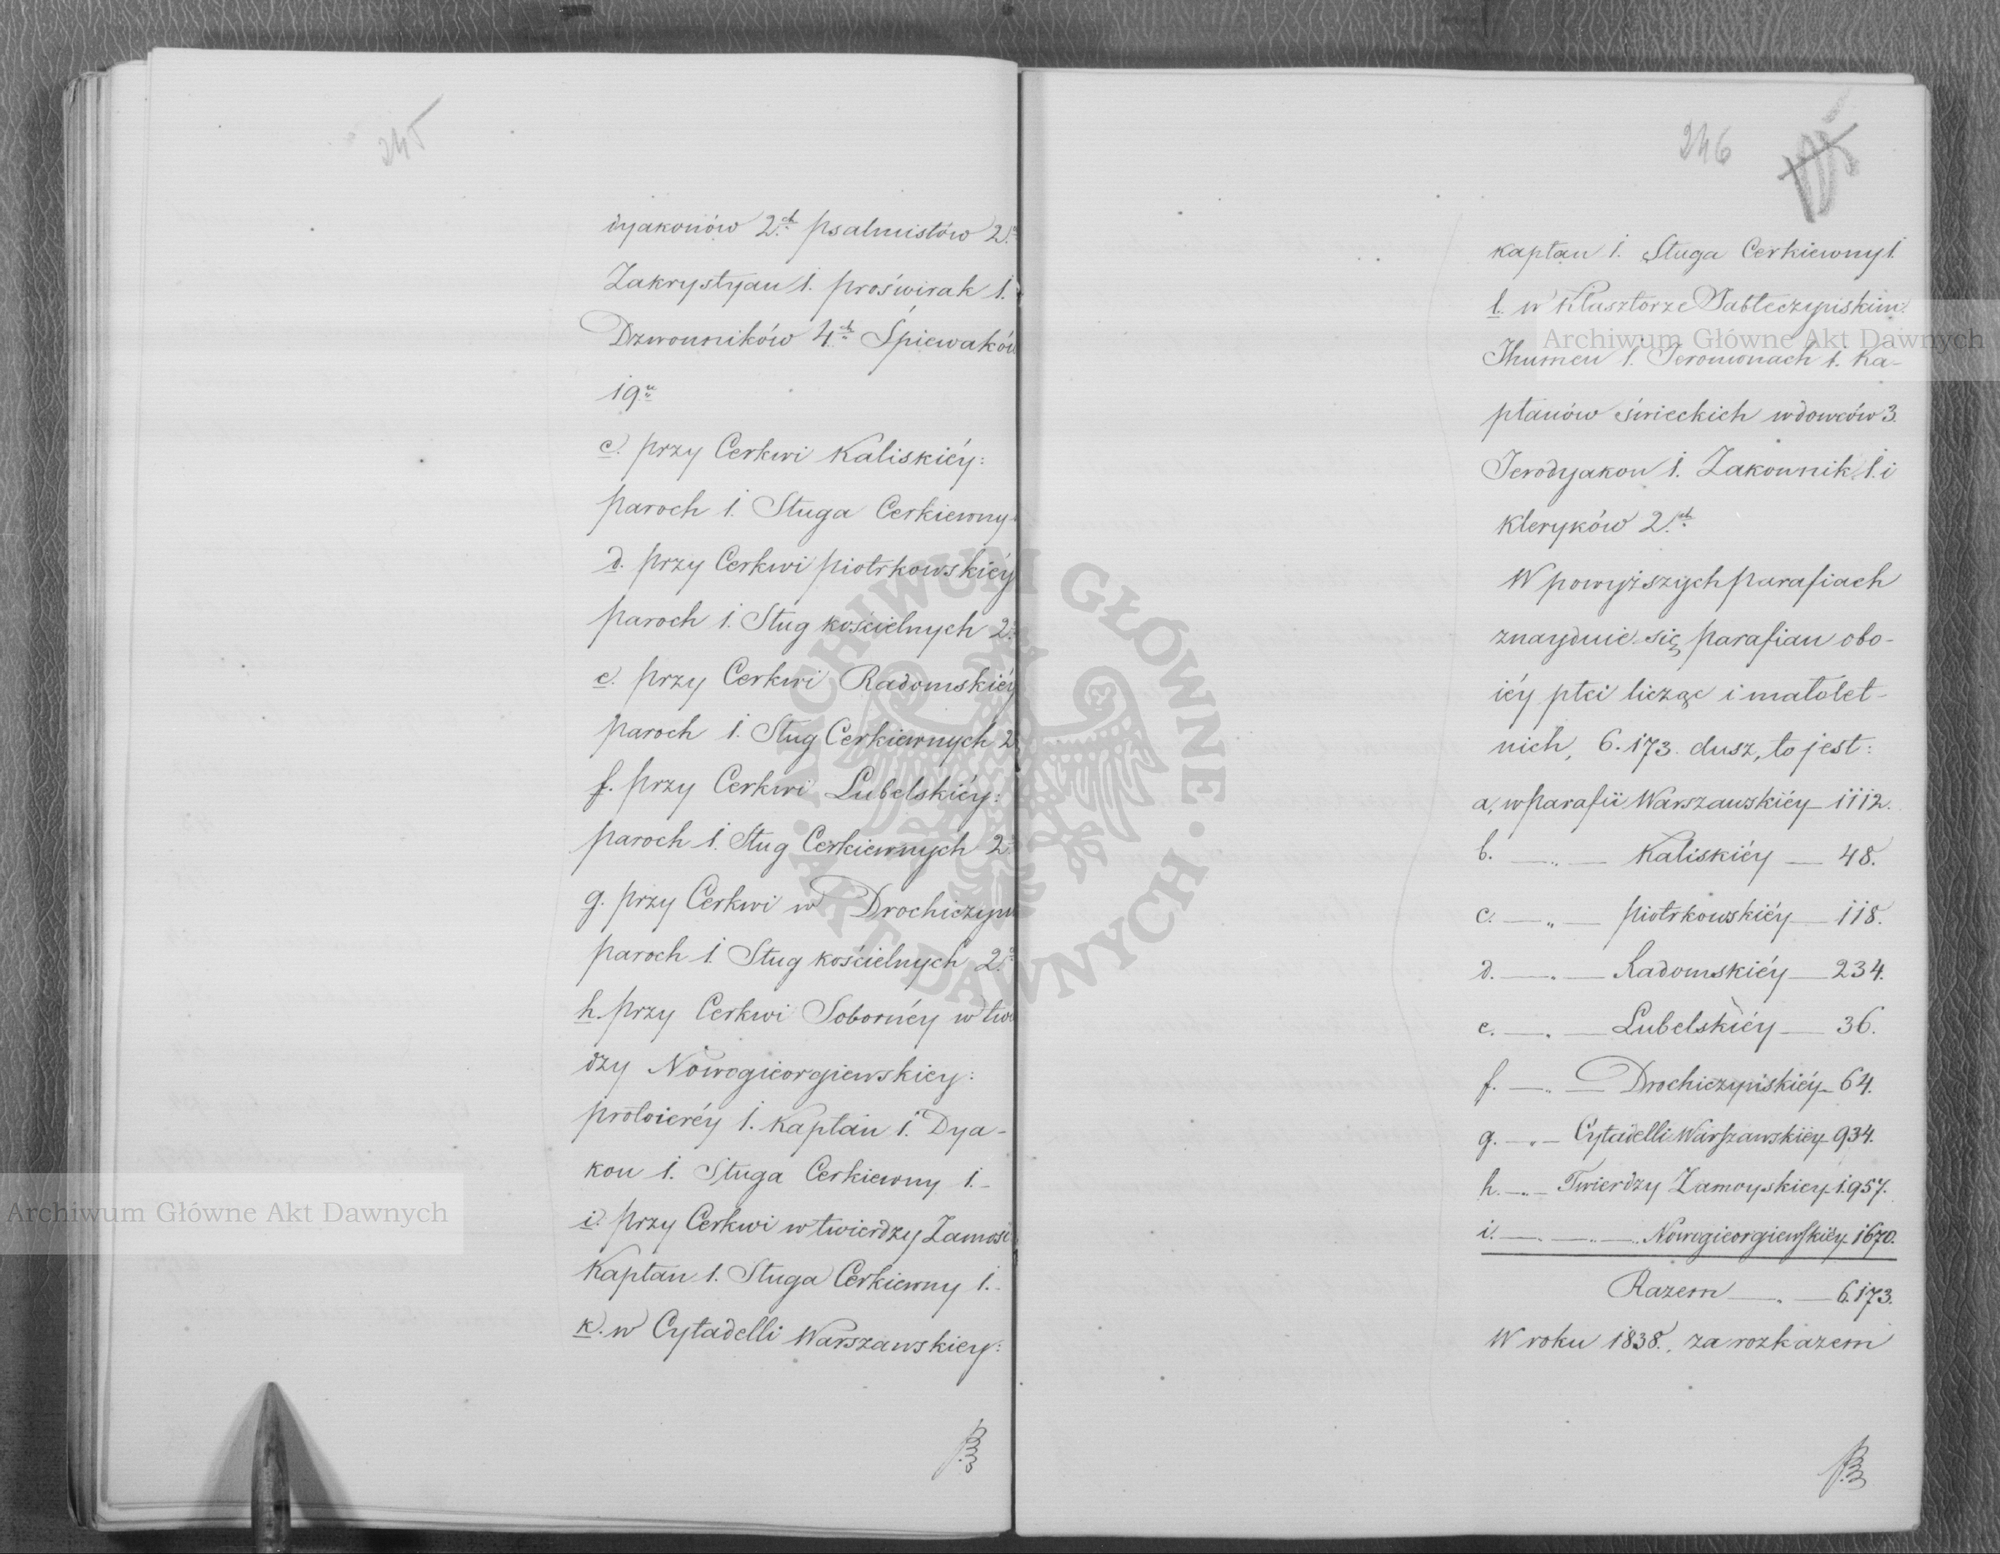 245
dyakonów 2.ch psalmistów 2.ch
Zakrystyan 1. proświrak 1.
Dzwonników 4.ch Śpiewaków
19.u
c. przy Cerkwi Kaliskiéy:
paroch 1. Sługa Cerkiewny
d. przy Cerkwi piotrkowskiéy
paroch 1. Sług kościelnych 2.
e. przy Cerkwi Radomskiéy
paroch 1. Sług Cerkiewnych 2
f. przy Cerkwi Lubelskiéy:
paroch 1. Sług Cerkiewnych 2.
g. przy Cerkwi w Drochiczyn
paroch 1. Sług kościelnych 2.
h. przy Cerkwi Sobornéy w twi
dzy Nowogieorgiewskiey:
protoieréy 1. Kapłan 1. Dya-
kon 1. Sługa Cerkiewny 1.-
i. przy Cerkwi w twierdzy Zamość
Kapłan 1. Sługa Cerkiewny 1.-
k. w Cytadelli Warszawskiey:
246
kapłan 1. Sługa Cerkiewny 1.
l. w Klasztorze Jabłeczyńskim.
Ihumen 1. Jeromonach 1. Ka-
płanów świeckich wdowców 3.
Jerodyakon 1. Zakonnik 1. i
kleryków 2.ch
W powyższych parafiach
znayduie się parafian obo-
iéy płci licząc i małolet-
nich, 6.173. dusz, to jest:
a, w parafii Warszawskiéy 1112.
b. — „ — Kaliskiéy — 48.
c. — „ — piotrkowskiéy — 118.
d. — „ — Radomskiéy — 234.
e. — „ — Lubelskiéy — 36.
f. — „ — Drochiczyńskiéy 64.
g. — „ — Cytadelli Warszawskiéy 934.
h. — „ — Twierdzy Zamoyskiey 1.957.
i. — „ — „ — Nowogieorgiewskiéy 1670.
Razem — „ — 6.173.
W roku 1838., za rozkazem
Archiwum Główne Akt Dawnych
Archiwum Główne Akt Dawnych
ARCHIWUM GŁÓWNE · AKT DAWNYCH ·